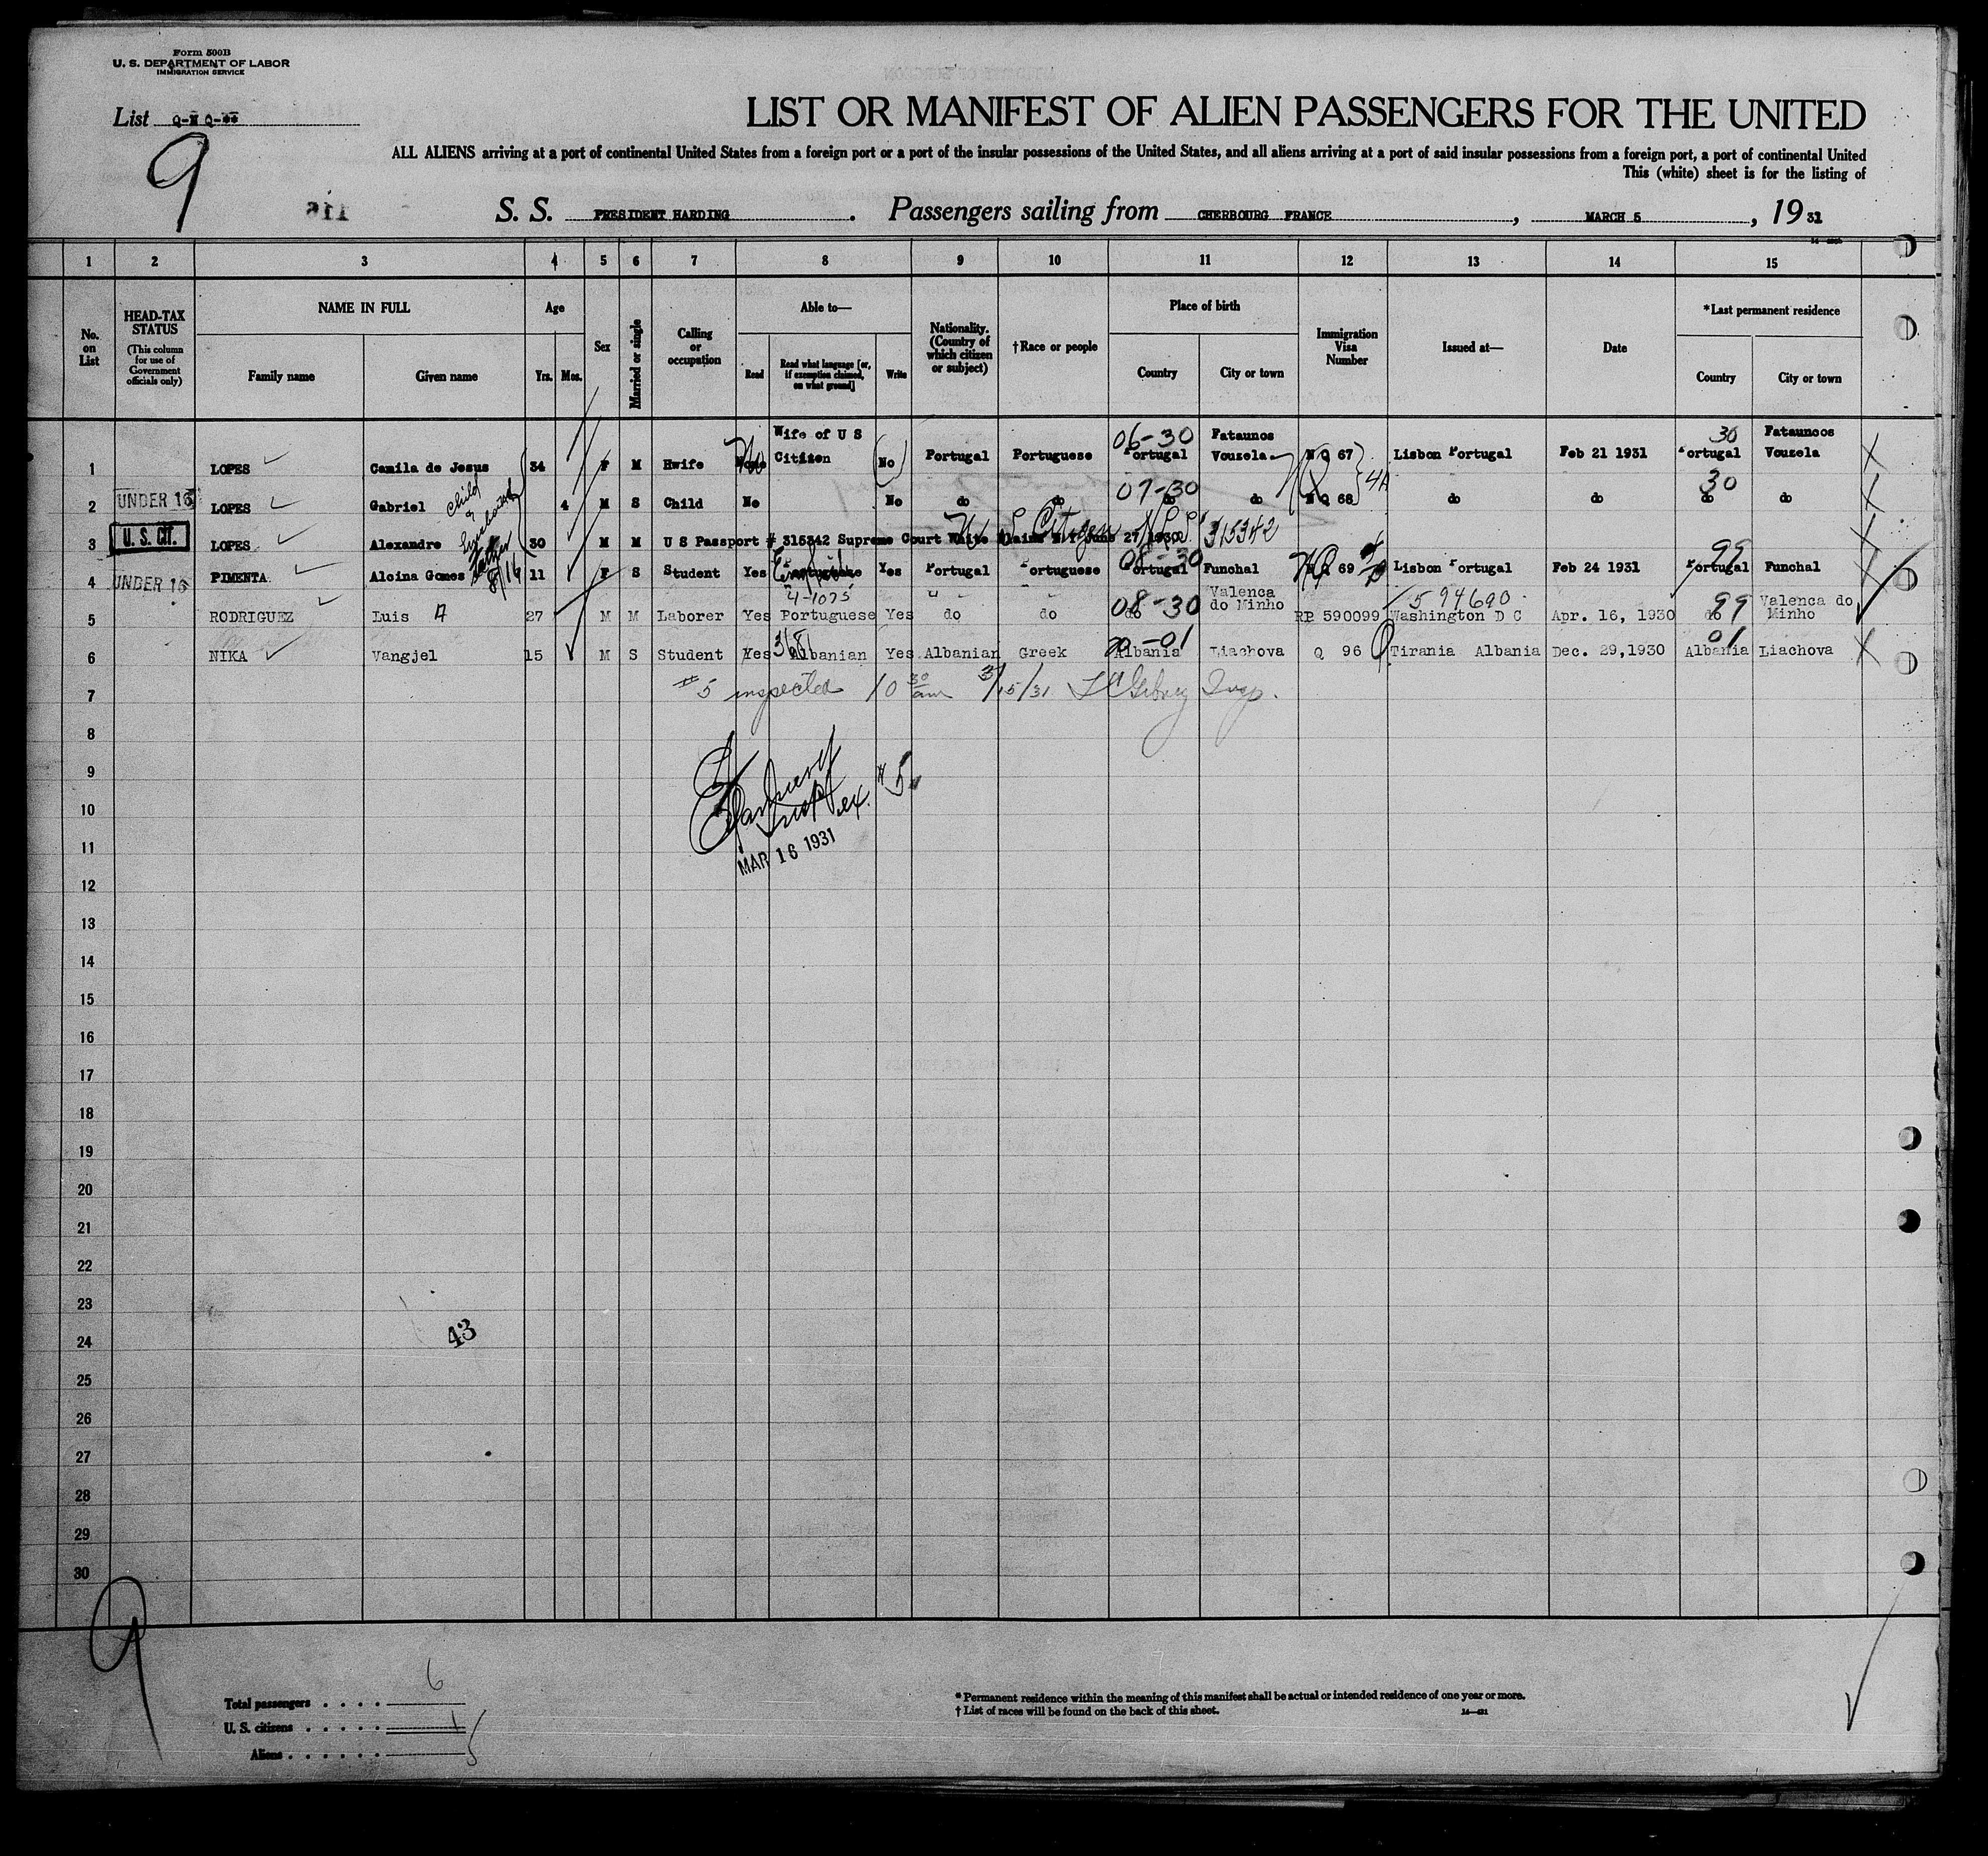 Form 500B
U. S. DEPARTMENT OF LABOR
IMMIGRATION SERVICE
List
9
LIST OR MANIFEST OF ALIEN PASSENGERS FOR THE UNITED
ALL ALIENS arriving at a port of continental United States from a foreign port or a port of the insular possessions of the United States, and all aliens arriving at a port of said insular possessions from a foreign port, a port of continental United
This (white) sheet is for the listing of
S. S. PRESIDENT HARDING . Passengers sailing from CHERBOURG FRANCE , MARCH 5 , 19 31
1 2 3 4 5 6 7 8 9 10 11 12 13 14 15
No. on List
HEAD-TAX STATUS
(This column for use of Government officials only)
NAME IN FULL
Family name Given name
Age
Yrs. Mos.
Sex
Married or single
Calling or occupation
Able to—
Read
Read what language [or, if exemption claimed, on what ground]
Write
Nationality. (Country of which citizen or subject)
†Race or people
Place of birth
Country City or town
Immigration Visa Number
Issued at—
Date
*Last permanent residence
Country City or town
Wife of U S 06-30 Fataunos 30 Fataunços
1 LOPES Camila de Jesus 34 F M Hwife No Citizen No Portugal Portuguese Portugal Vouzela N Q 67 4A Lisbon Portugal Feb 21 1931 Portugal Vouzela
07-30 30
2 UNDER 16 LOPES Gabriel 4 M S Child No No do do do do N Q 68 do do do do
child & husband
3 U. S. CIT. LOPES Alexandre 30 M M U S Passport # 315342 Supreme Court White Plains N Y June 27 1930
U S Citizen 315342
father
08-30 99
4 UNDER 16 PIMENTA Alcina Gomes 11 F S Student Yes Portuguese Yes Portugal Portuguese Portugal Funchal N Q 69 Lisbon Portugal Feb 24 1931 Portugal Funchal
4-1075 08-30 Valenca 594690 99 Valenca do
5 RODRIGUEZ Luis A 27 M M Laborer Yes Portuguese Yes do do do do Minho RP 590099 Washington D C Apr. 16, 1930 do Minho
368 01 01
6 NIKA Vangjel 15 M S Student Yes Albanian Yes Albanian Greek Albania Liachova Q 96 Tirania Albania Dec. 29,1930 Albania Liachova
7 #5 inspected 10 30 am 3/15/31 Insp.
8
9
#5
10
11
MAR 16 1931
12
13
14
15
16
17
18
19
20
21
22
23
24
43
25
26
27
28
29
30
9
Total passengers . . . . 6
U. S. citizens . . . . . 1
Aliens . . . . . . 5
* Permanent residence within the meaning of this manifest shall be actual or intended residence of one year or more.
† List of races will be found on the back of this sheet.